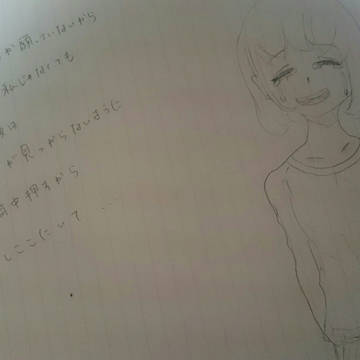 が願っていないから
私じゃなくても
は
が見つからないように
背中押すから
しここにいて…